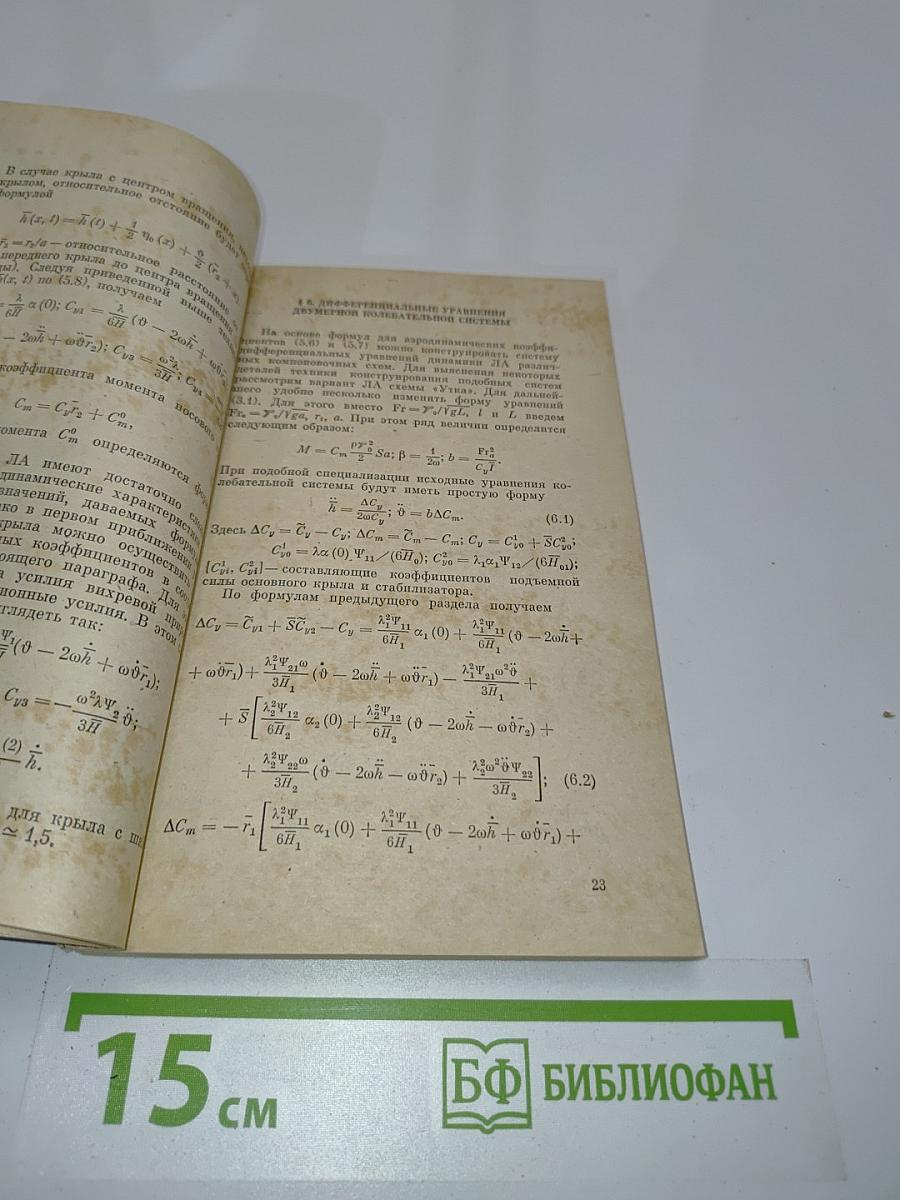 В случае крыла с центром вращения,
крылом, относительное отстояние будет
формулой
h̅(x, t) = h̅(t) + 1/2 η₀(x) + ϑ/2 (r̅₂ + x),
r̅₂ = r₂/a — относительное расстояние
переднего крыла до центра вращения
Следуя приведенной выше
(x, t) по (5.8), получаем
λ/6H̅ α(0); C_y1 = λ/6H̅ (ϑ − 2ωḣ̅ +
− 2ωḧ̅ + ωϑ̈r̅₂); C_y3 = ω²λ/3H̅
коэффициента момента носового
C_m = C_y r̅₂ + C_m⁰,
момента C_m⁰ определяются
ЛА имеют достаточно
динамические характеристики
значений, даваемых
в первом приближении
крыла можно осуществить
коэффициентов в
параграфа. Для
усилия вихревой
усилия. В этом
глядеть так:
(ϑ − 2ωḣ̅ + ωϑ̇r̅₁);
C_y3 = − ω²λΨ₂/3H̅ ϑ̈;
(2) ḣ̅.
для крыла с
≃ 1,5.
§ 6. ДИФФЕРЕНЦИАЛЬНЫЕ УРАВНЕНИЯ
ДВУМЕРНОЙ КОЛЕБАТЕЛЬНОЙ СИСТЕМЫ
На основе формул для аэродинамических коэффи-
циентов (5,6) и (5,7) можно конструировать систему
дифференциальных уравнений динамики ЛА различ-
ных компоновочных схем. Для выяснения некоторых
деталей техники конструирования подобных систем
рассмотрим вариант ЛА схемы «Утка». Для дальней-
шего удобно несколько изменить форму уравнений
(3.1). Для этого вместо Fr = 𝒱₀/√gL, l и L введем
Frₐ = 𝒱₀/√ga, r₁, a. При этом ряд величин определится
следующим образом:
M = C_m ρ𝒱₀²/2 Sa; β = 1/2ω; b = Frₐ²/C_y I̅.
При подобной специализации исходные уравнения ко-
лебательной системы будут иметь простую форму
ḧ̅ = ΔC_y/2ωC_y; ϑ̈ = bΔC_m. (6.1)
Здесь ΔC_y = C̃_y − C_y; ΔC_m = C̃_m − C_m; C_y = C¹_y0 + S̅C²_y0;
C¹_y0 = λα(0) Ψ₁₁/(6H̅₀); C²_y0 = λ₁α₁Ψ₁₂/(6H̅₀₁);
[C¹_yi, C²_yi] — составляющие коэффициентов подъемной
силы основного крыла и стабилизатора.
По формулам предыдущего раздела получаем
ΔC_y = C̃_y1 + S̅C̃_y2 − C_y = λ₁²Ψ₁₁/6H̅₁ α₁(0) + λ₁²Ψ₁₁/6H̅₁ (ϑ − 2ωḣ̅ +
+ ωϑ̇r̅₁) + λ₁²Ψ₂₁ω/3H̅₁ (ϑ̇ − 2ωḧ̅ + ωϑ̈r̅₁) − λ₁²Ψ₂₁ω²ϑ̈/3H̅₁ +
+ S̅ [λ₂²Ψ₁₂/6H̅₂ α₂(0) + λ₂²Ψ₁₂/6H̅₂ (ϑ − 2ωḣ̅ − ωϑ̇r̅₂) +
+ λ₂²Ψ₂₂ω/3H̅₂ (ϑ̇ − 2ωḧ̅ − ωϑ̈r̅₂) + λ₂²ω²ϑ̈Ψ₂₂/3H̅₂]; (6.2)
ΔC_m = − r̅₁ [λ₁²Ψ₁₁/6H̅₁ α₁(0) + λ₁²Ψ₁₁/6H̅₁ (ϑ − 2ωḣ̅ + ωϑ̇r̅₁) +
23
15 см
БФ БИБЛИОФАН